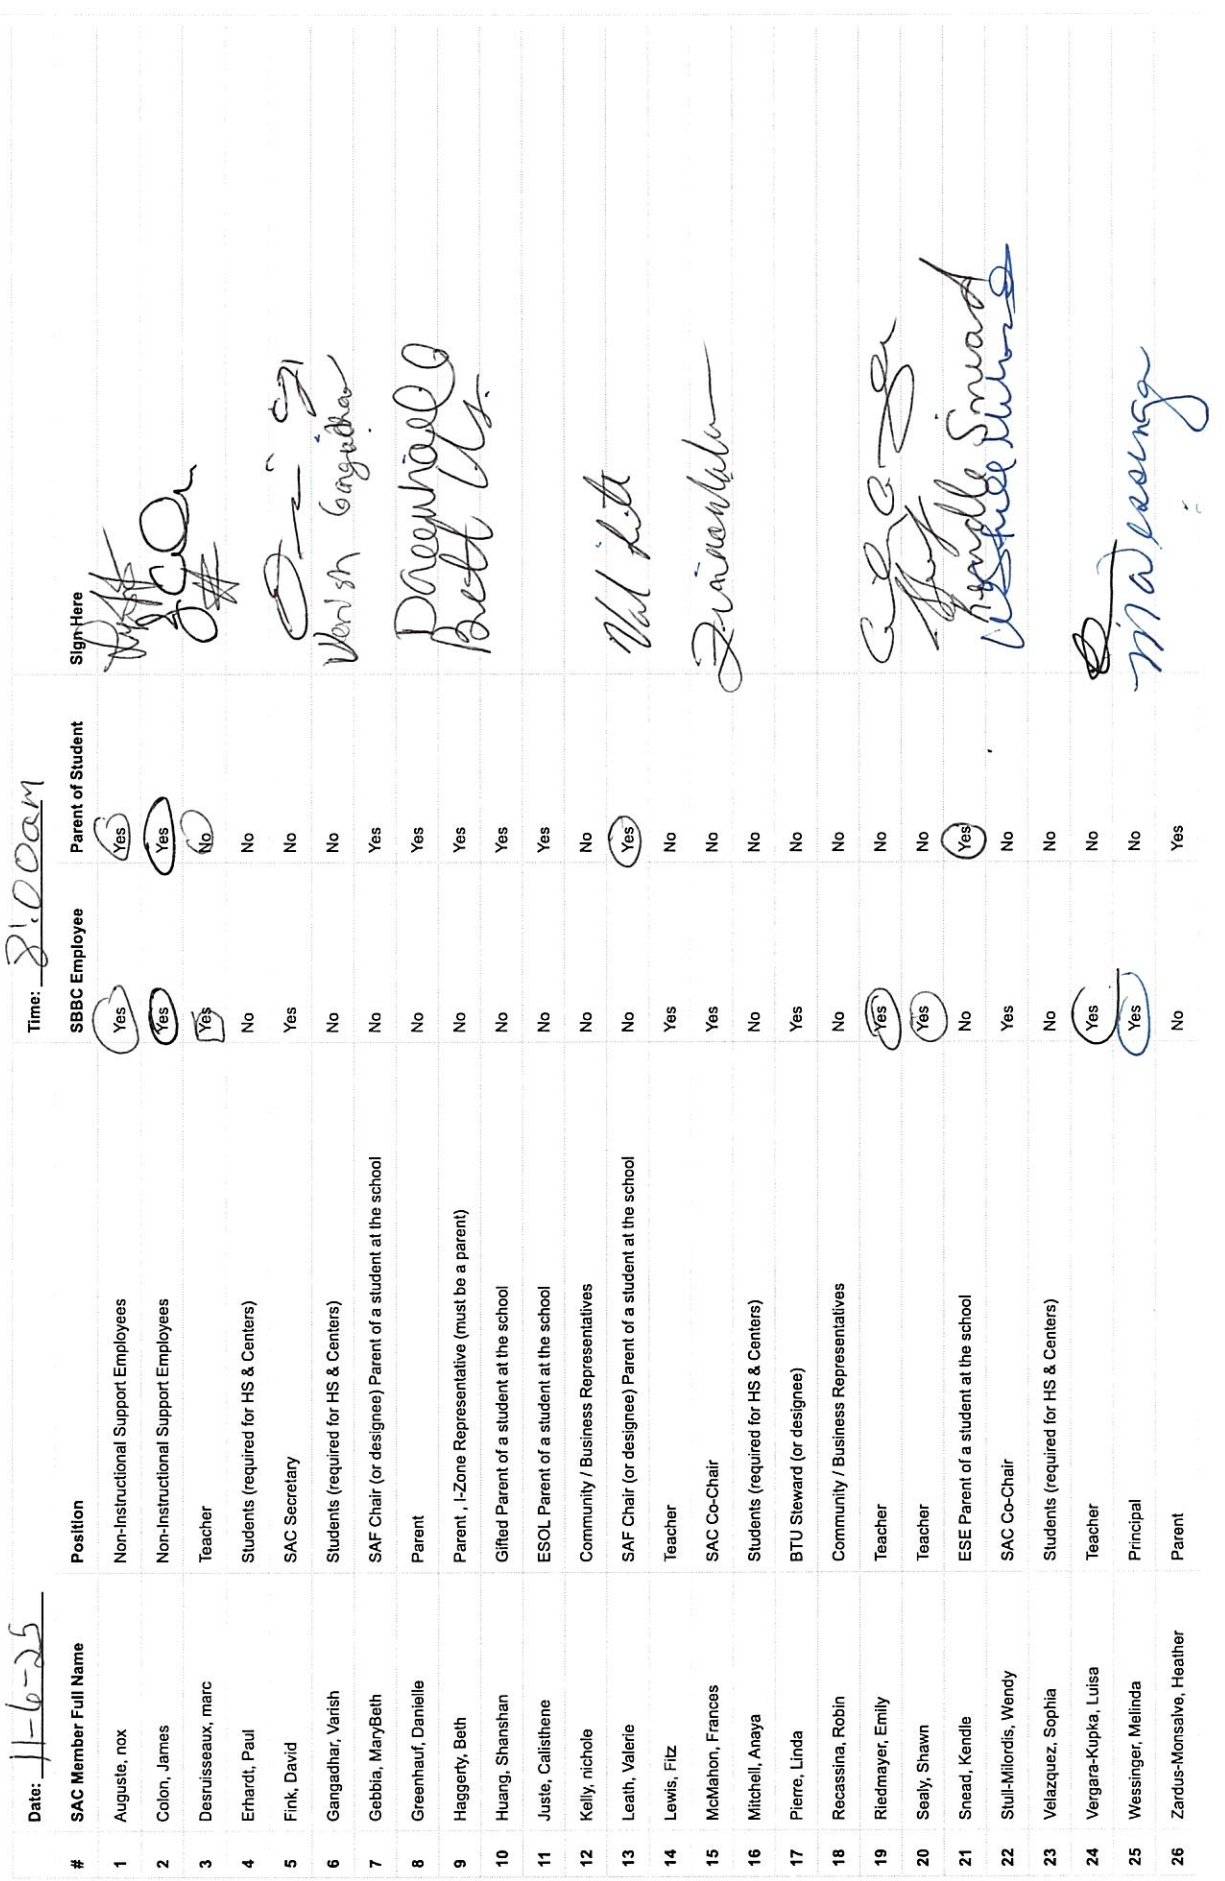 Date: 11-6-25 Time: 8:00am
# SAC Member Full Name Position SBBC Employee Parent of Student Sign Here
1 Auguste, nox Non-Instructional Support Employees Yes Yes
2 Colon, James Non-Instructional Support Employees Yes Yes
3 Desruisseaux, marc Teacher Yes No
4 Erhardt, Paul Students (required for HS & Centers) No No
5 Fink, David SAC Secretary Yes No
6 Gangadhar, Varish Students (required for HS & Centers) No No Varish Gangadhar
7 Gebbia, MaryBeth SAF Chair (or designee) Parent of a student at the school No Yes
8 Greenhauf, Danielle Parent No Yes
9 Haggerty, Beth Parent , I-Zone Representative (must be a parent) No Yes
10 Huang, Shanshan Gifted Parent of a student at the school No Yes
11 Juste, Calisthene ESOL Parent of a student at the school No Yes
12 Kelly, nichole Community / Business Representatives No No
13 Leath, Valerie SAF Chair (or designee) Parent of a student at the school No Yes Val
14 Lewis, Fitz Teacher Yes No
15 McMahon, Frances SAC Co-Chair Yes No
16 Mitchell, Anaya Students (required for HS & Centers) No No
17 Pierre, Linda BTU Steward (or designee) Yes No
18 Recassina, Robin Community / Business Representatives No No
19 Riedmayer, Emily Teacher Yes No
20 Sealy, Shawn Teacher Yes No
21 Snead, Kendle ESE Parent of a student at the school No Yes Kendle Snead
22 Stull-Milordis, Wendy SAC Co-Chair Yes No
23 Velazquez, Sophia Students (required for HS & Centers) No No
24 Vergara-Kupka, Luisa Teacher Yes No
25 Wessinger, Melinda Principal Yes No
26 Zardus-Monsalve, Heather Parent No Yes